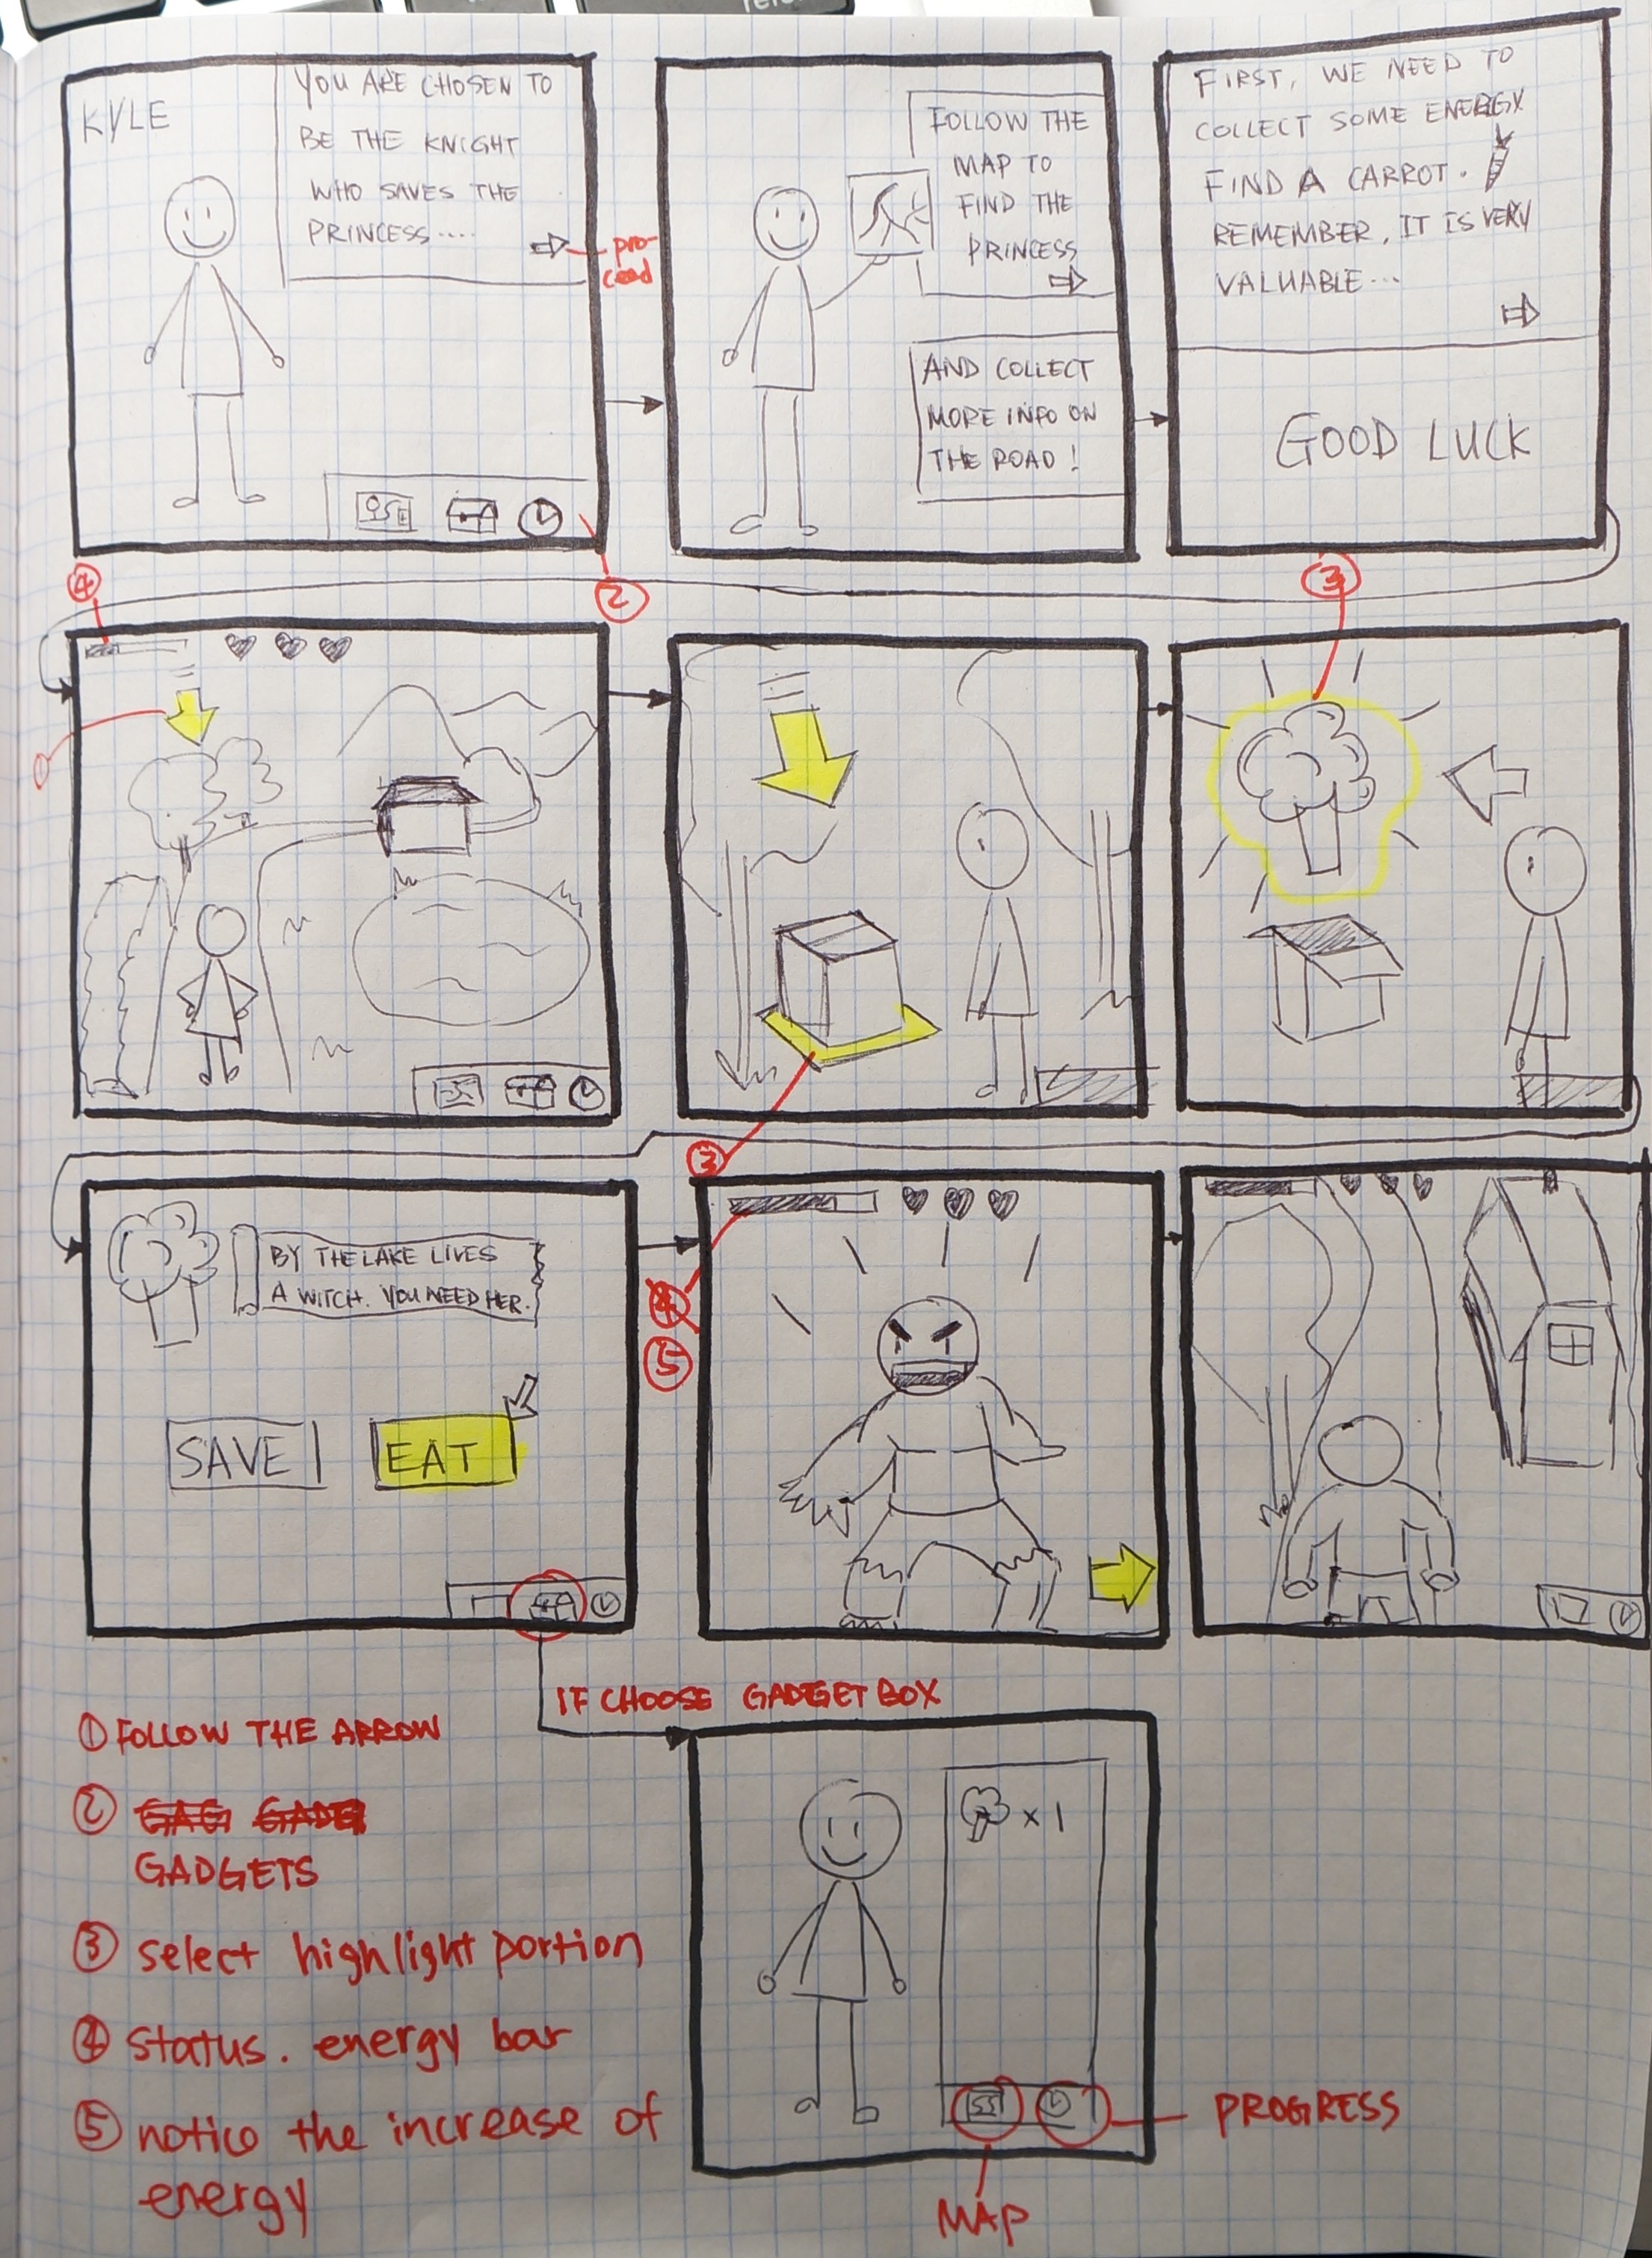 KYLE
YOU ARE CHOSEN TO
BE THE KNIGHT
WHO SAVES THE
PRINCESS....
pro-
ceed
FOLLOW THE
MAP TO
FIND THE
PRINCESS
AND COLLECT
MORE INFO ON
THE ROAD!
FIRST, WE NEED TO
COLLECT SOME ENERGY
FIND A CARROT.
REMEMBER, IT IS VERY
VALUABLE...
GOOD LUCK
④
②
③
①
③
BY THE LAKE LIVES
A WITCH. YOU NEED HER.
SAVE
EAT
⑤
IF CHOOSE GADGET BOX
① FOLLOW THE ARROW
②
GADGETS
③ select highlight portion
④ status. energy bar
⑤ notice the increase of
energy
x 1
PROGRESS
MAP